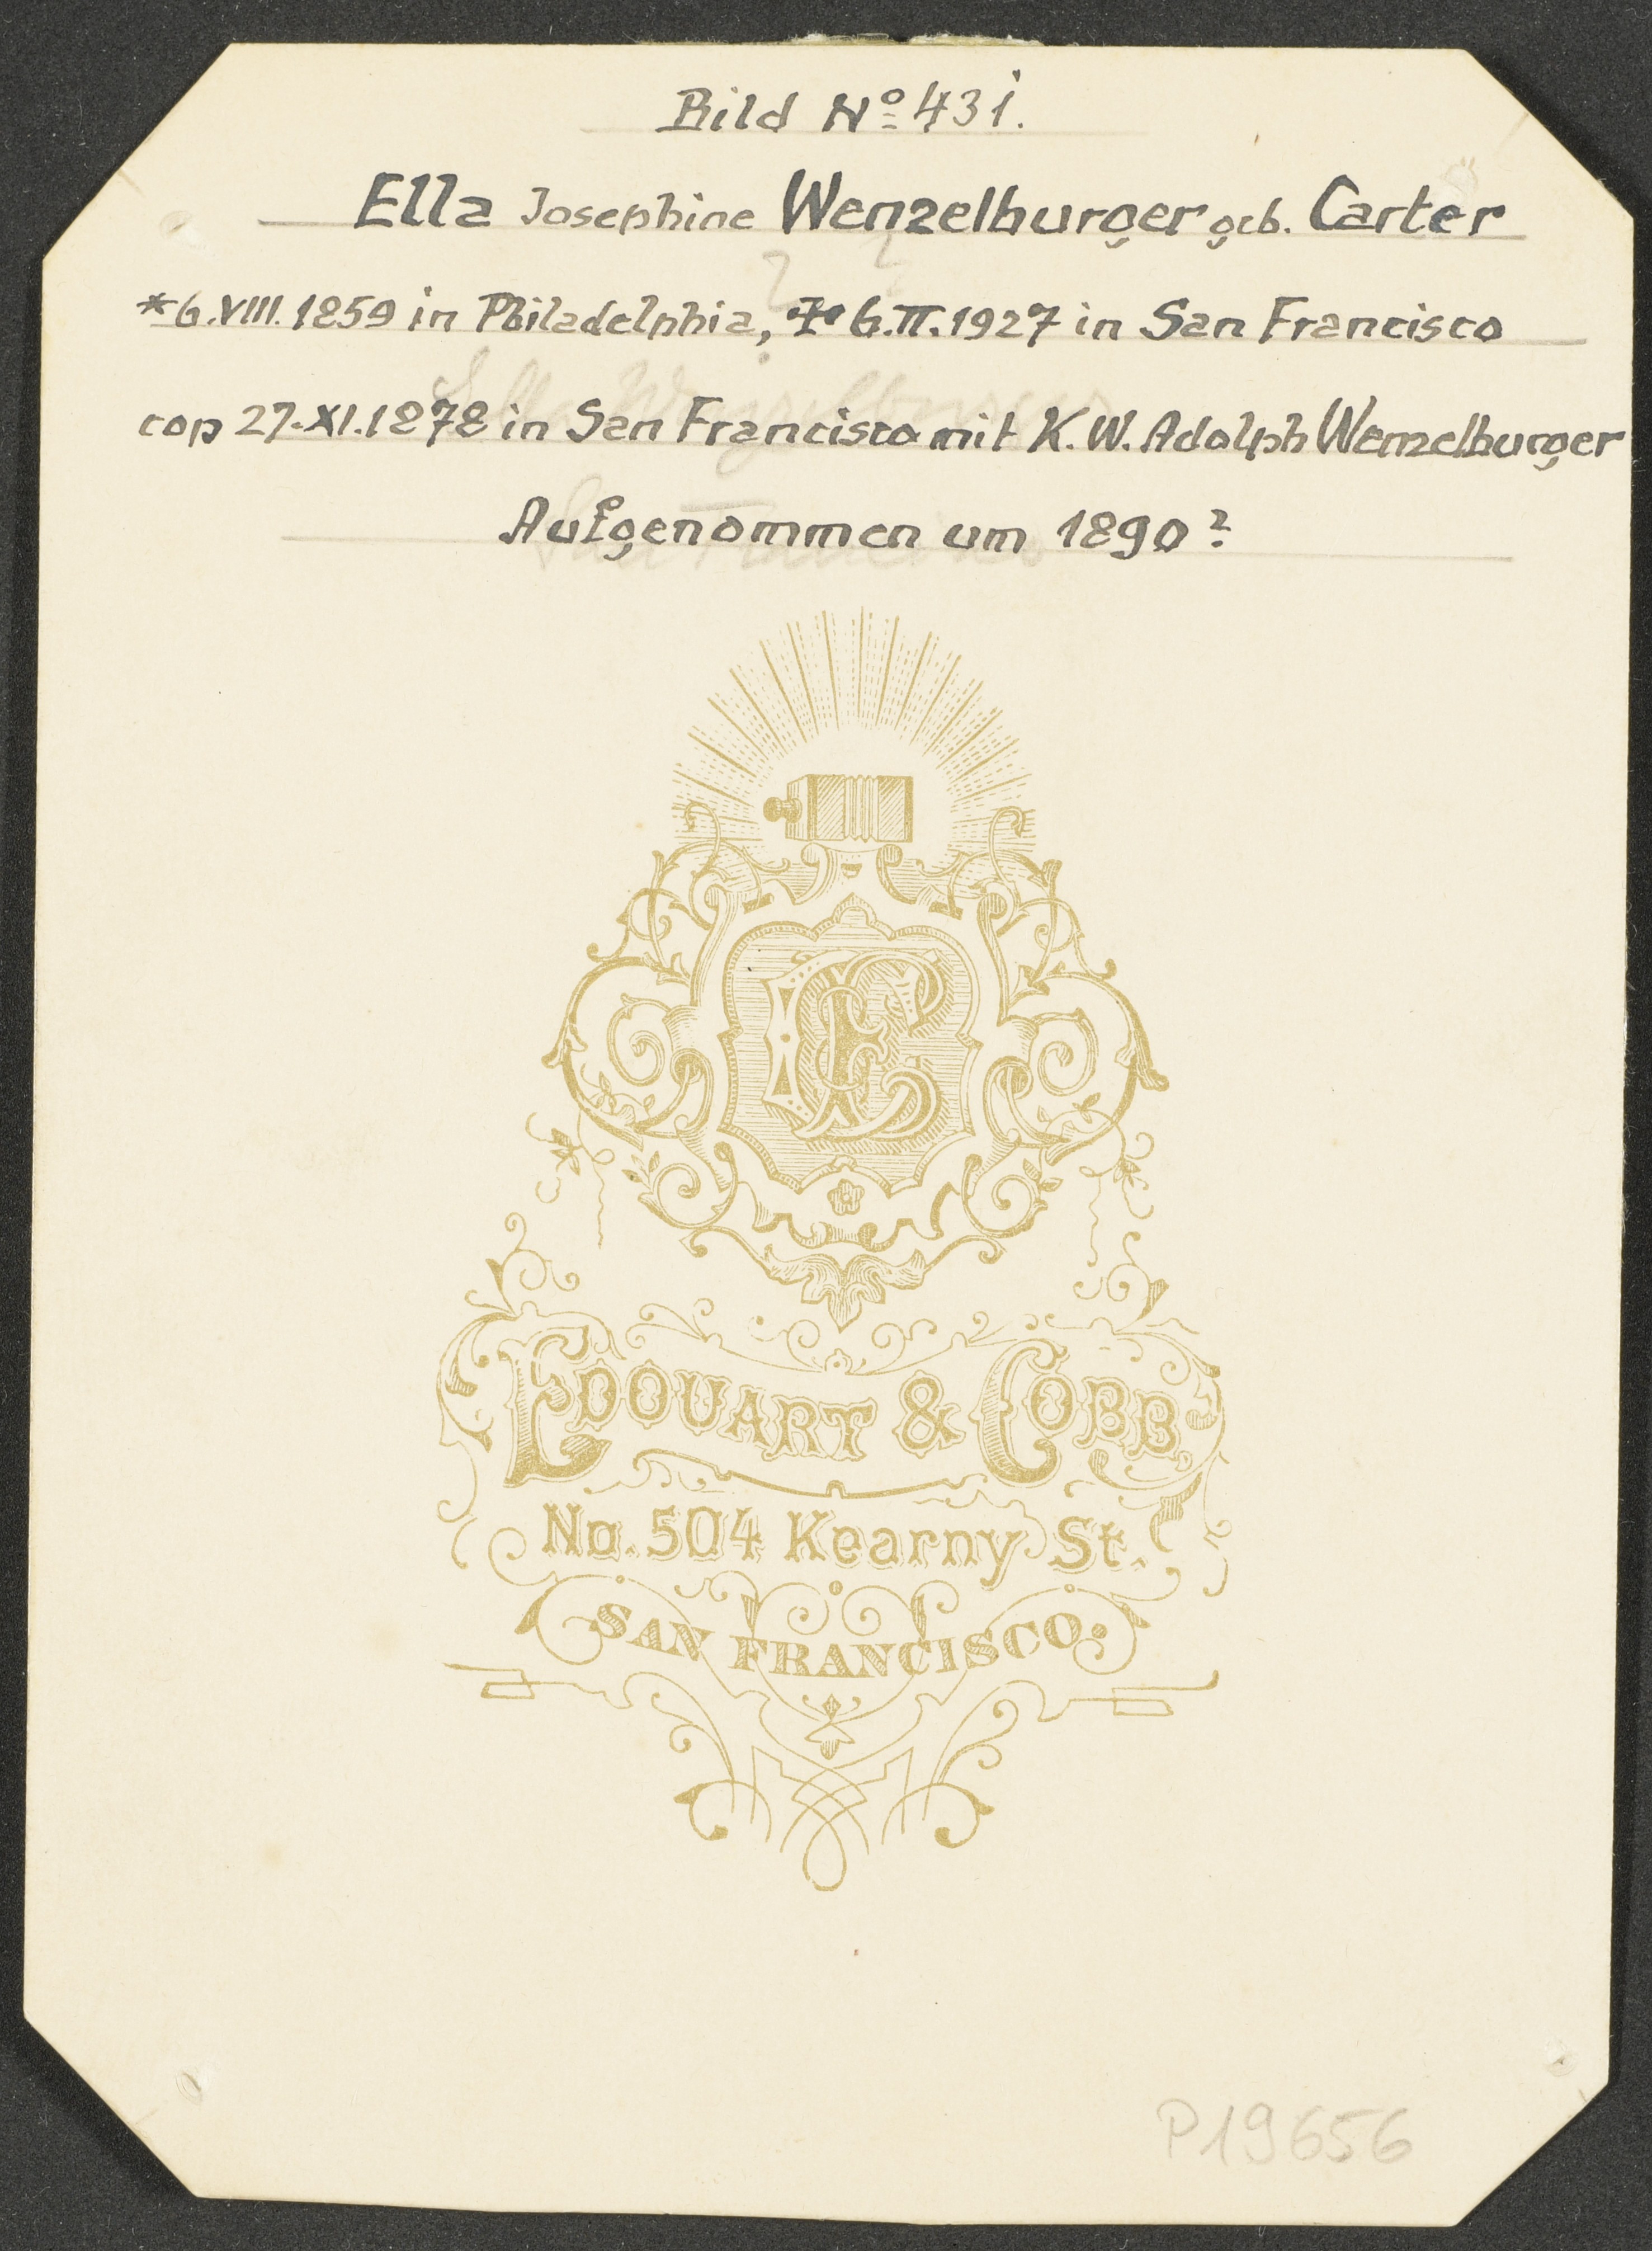 Bild No 431.
Ella Josephine Wenzelburger geb. Carter
*6.VIII.1859 in Philadelphia, 6.II.1927 in San Francisco
cop 27.XI.1878 in San Francisco mit K.W. Adolph Wenzelburger
Aufgenommen um 1890?
EDOUART & COBB
No. 504 Kearny St.
SAN FRANCISCO.
P19656